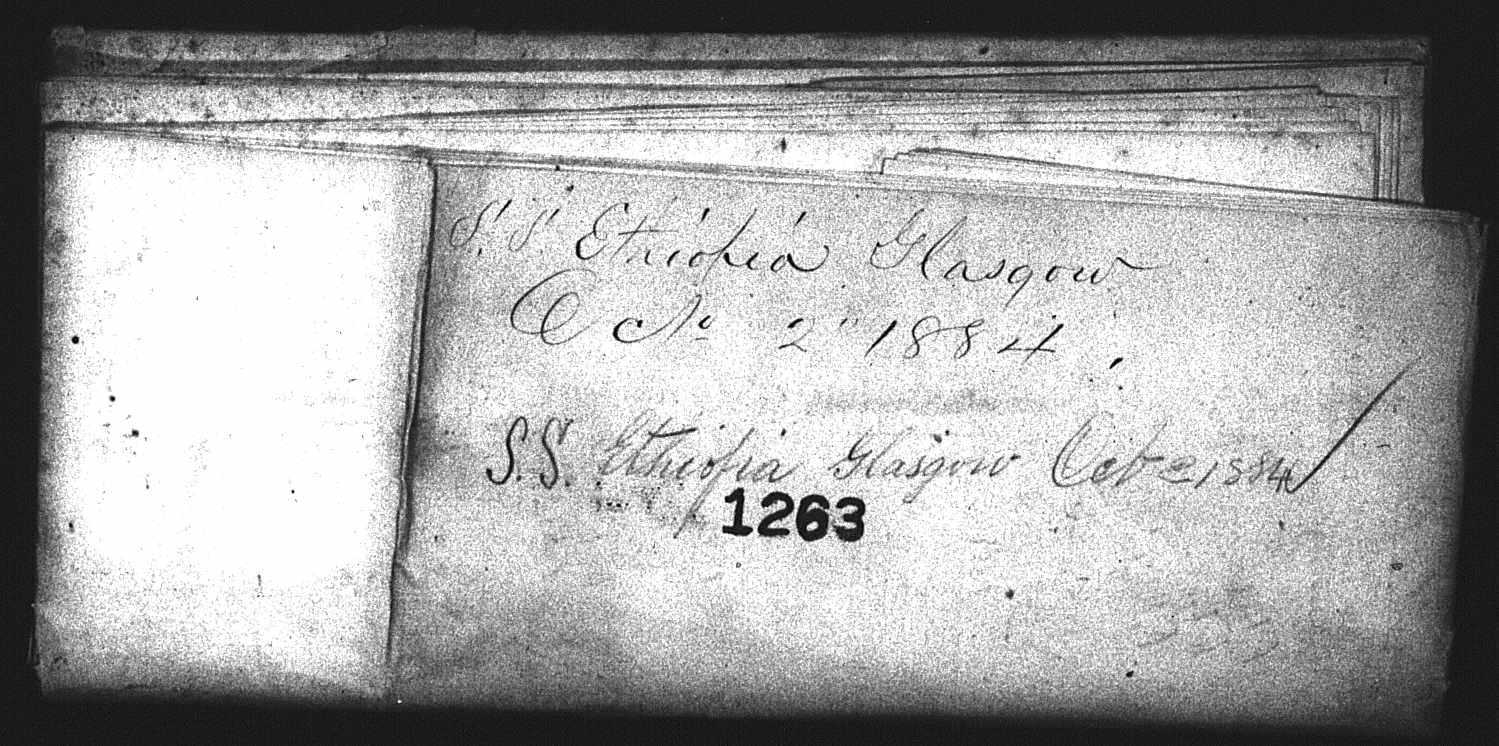 S.S. Ethiopia Glasgow
No 2" 1884
S.S. Ethiopia Glasgow Oct 2 1884
1263